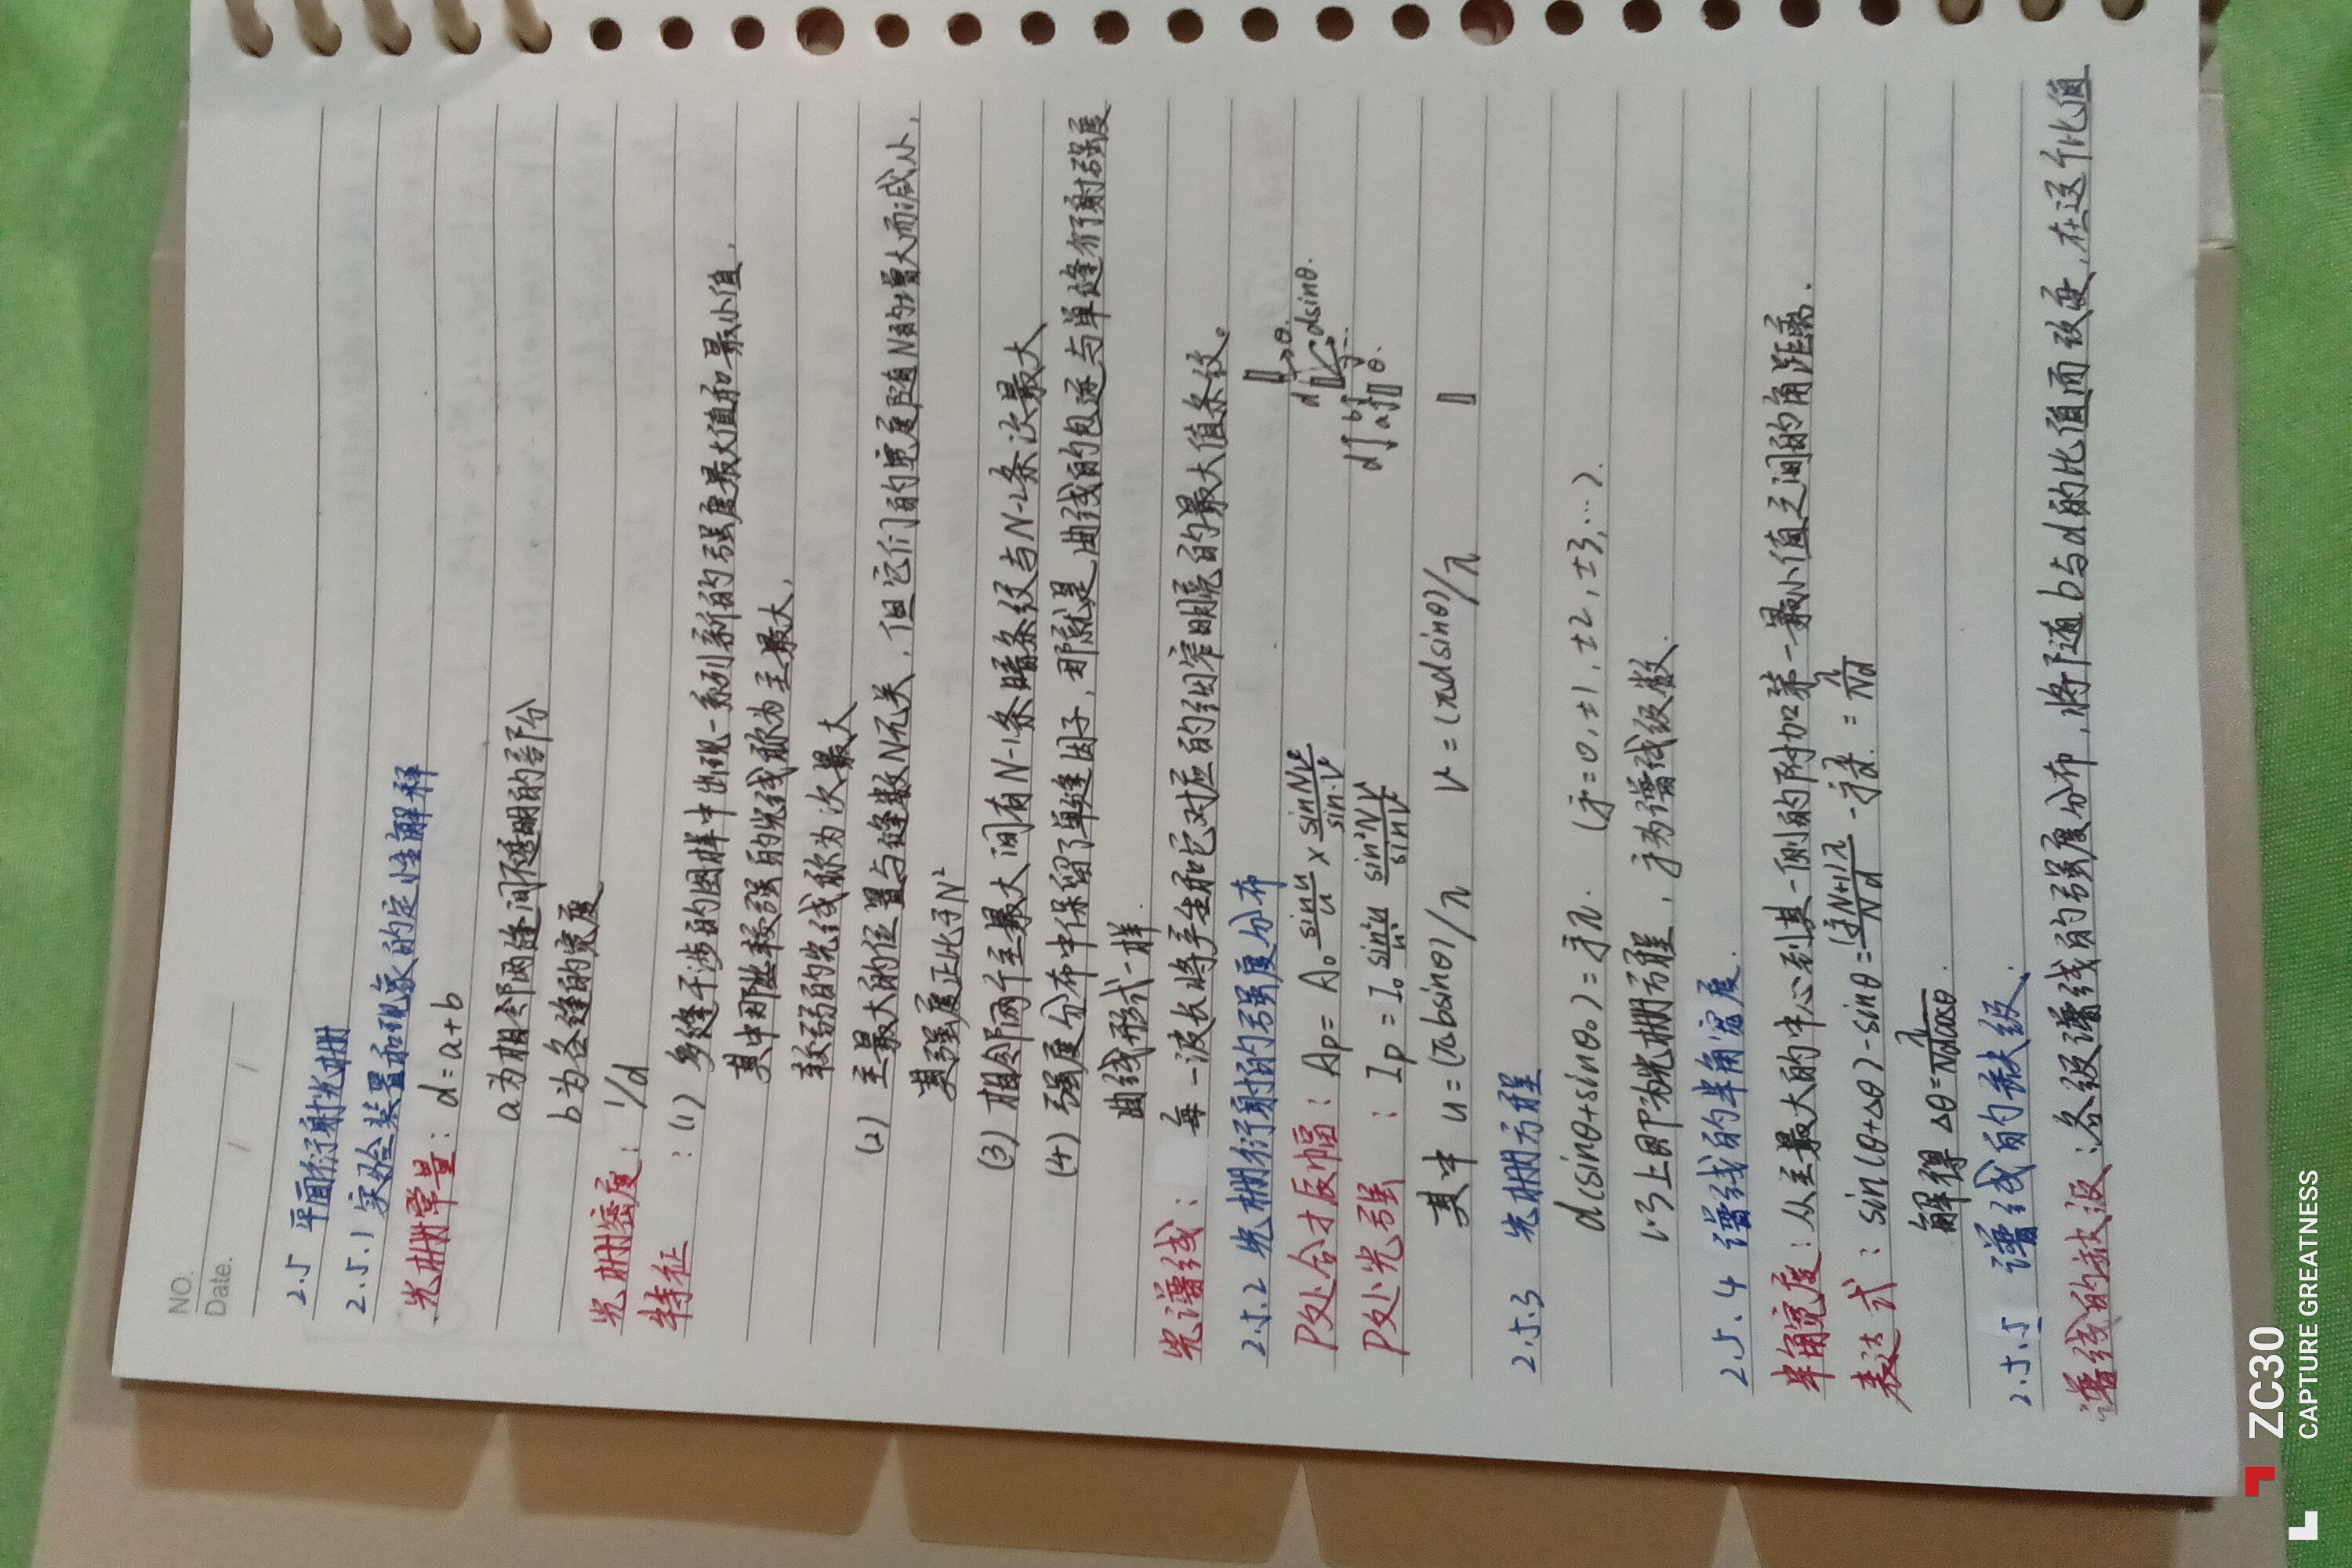 NO.
Date. / /
2.5 平面衍射光栅
2.5.1 实验装置和现象的定性解释
光栅常量: d=a+b
a为相邻两缝间不透明的部分
b为各缝的宽度
光栅密度: 1/d
特征 : (1) 多缝干涉的图样中出现一系列新的强度最大值和最小值,
其中那些较强的光线称为主最大,
较弱的光线称为次最大
(2) 主最大的位置与缝数N无关, 但它们的宽度随N的增大而减小,
其强度正比于N²
(3) 相邻两个主最大间有N-1条暗条纹与N-2条次最大
(4) 强度分布中保留了单缝因子, 那就是曲线的包迹与单缝衍射强度
曲线形式一样.
光谱线: 每一波长将产生和它对应的细窄明亮的最大值条纹。
2.5.2 光栅衍射的强度分布
P处合才辰幅: Ap = A₀ sinu/u × sinNv/sin·v
P处光强 : Ip = I₀ sin²u/u² sin²Nv/sin²v
其中 u=(πbsinθ)/λ v=(πdsinθ)/λ
d θ. dsinθ.
d b a θ.
2.5.3 光栅方程
d(sinθ+sinθ₀)=jλ. (j=0,±1,±2,±3,…).
以上即称光栅方程, j为谱线级数.
2.5.4 谱线的半角宽度.
半角宽度: 从主最大的中心到其一侧的附加第一最小值之间的角距离.
表达式: sin(θ+Δθ)-sinθ=(jN+1)λ/Nd - jλ/d. = λ/Nd
解得 Δθ=λ/Ndcosθ.
2.5.5 谱线的缺级.
谱线的缺级: 各级谱线的强度分布, 将随b与d的比值而改变, 在这个比值
ZC30
CAPTURE GREATNESS